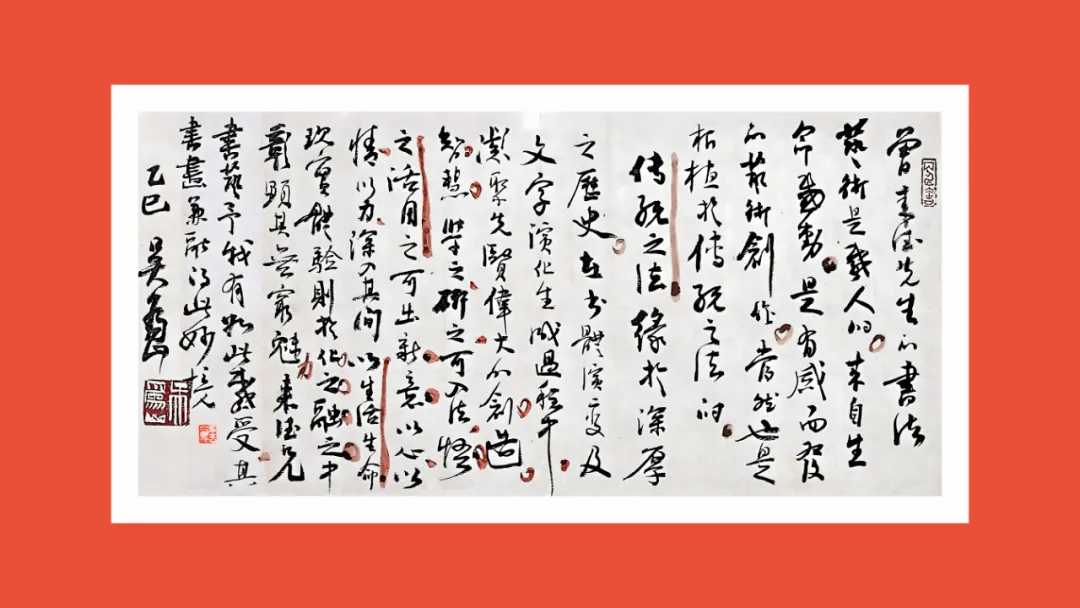 曾来德先生的書法
藝術是感人的来自生
命感動是有感而發
的藝術創作當然也是
根植於傳統之法的
传统之法緣於深厚
之歷史在书體演變及
文字演化生成過程中
凝聚先賢偉大的創造
智慧學之研之可入法悟
之活用之可出新意以心以
情以力深入其间以生活生命
實體验則於化之融之中
彰顯其無窮魅力来德兄
書藝予我有如此感受其
書畫兼融此妙境
乙巳 吴为山